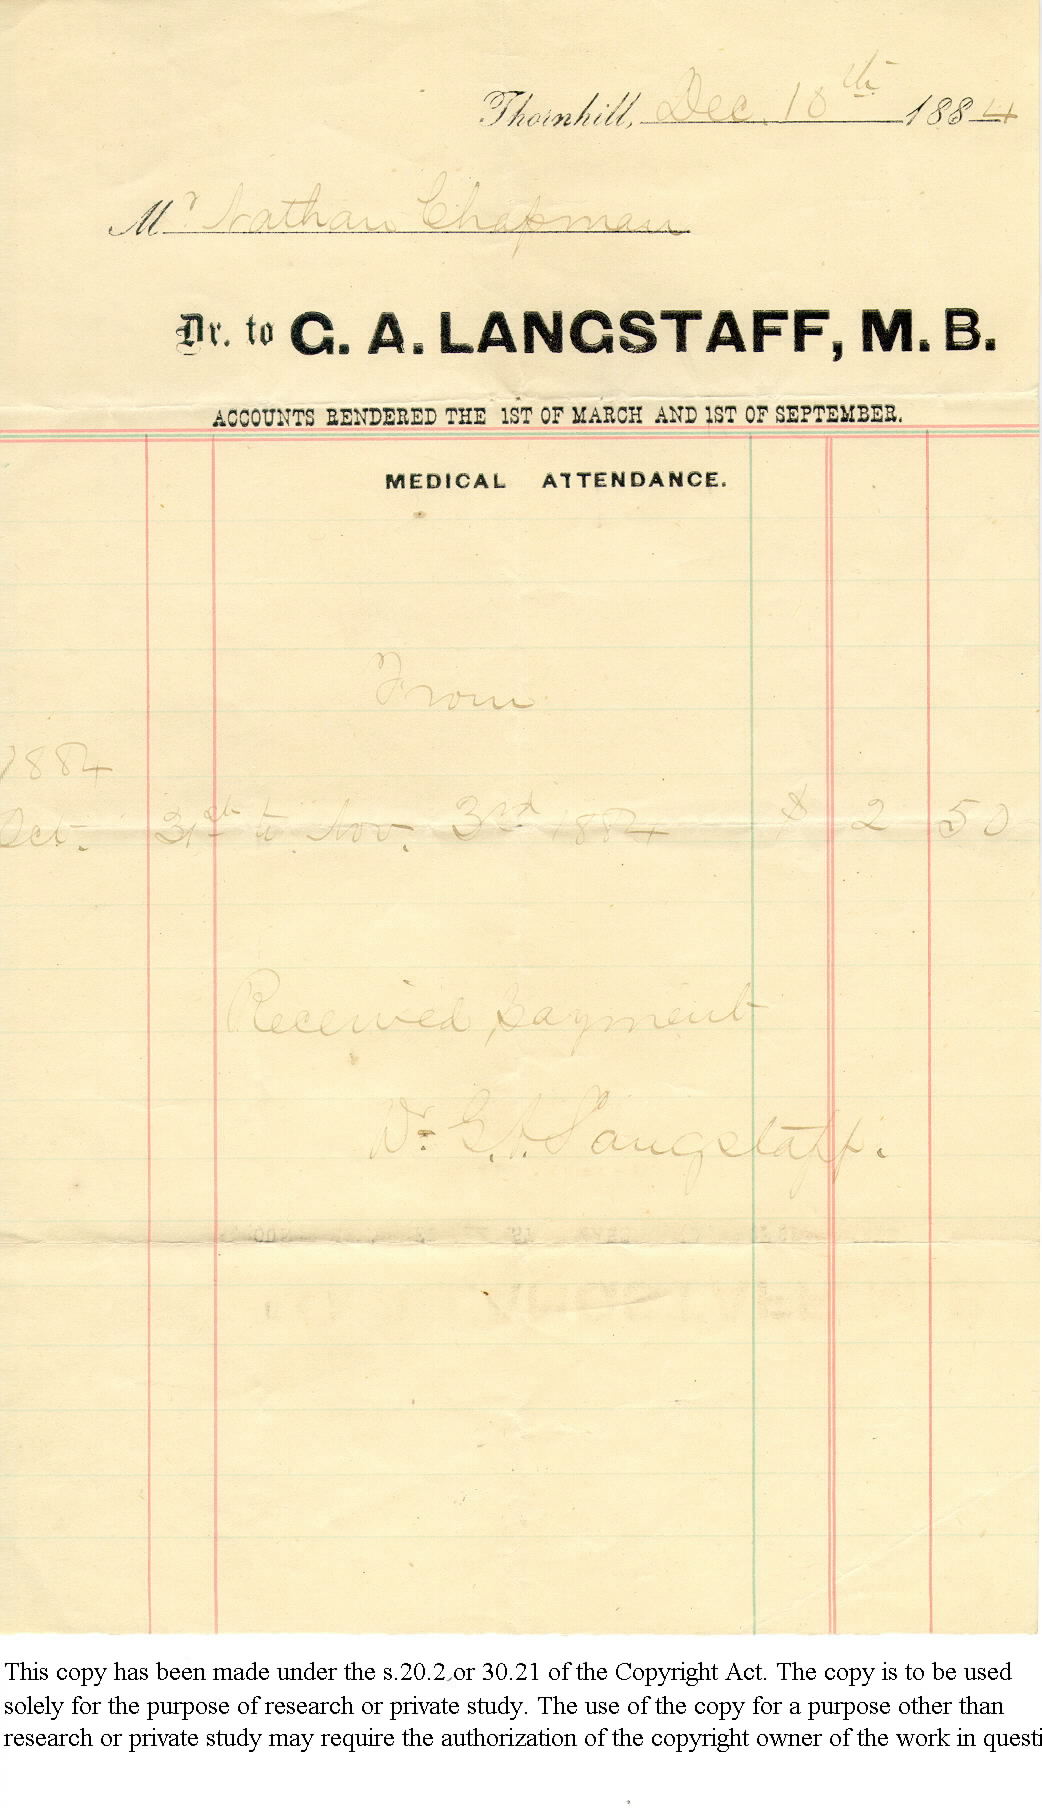 Thornhill, Dec. 18th 1884
Mr Nathan Chapman
Dr. to G. A. LANGSTAFF, M. B.
ACCOUNTS RENDERED THE 1ST OF MARCH AND 1ST OF SEPTEMBER.
MEDICAL ATTENDANCE.
From
1884
Oct. 31st to Nov. 3rd 1884 $ 2 50
Received payment
Dr. G. A. Langstaff.
This copy has been made under the s.20.2 or 30.21 of the Copyright Act. The copy is to be used
solely for the purpose of research or private study. The use of the copy for a purpose other than
research or private study may require the authorization of the copyright owner of the work in questi